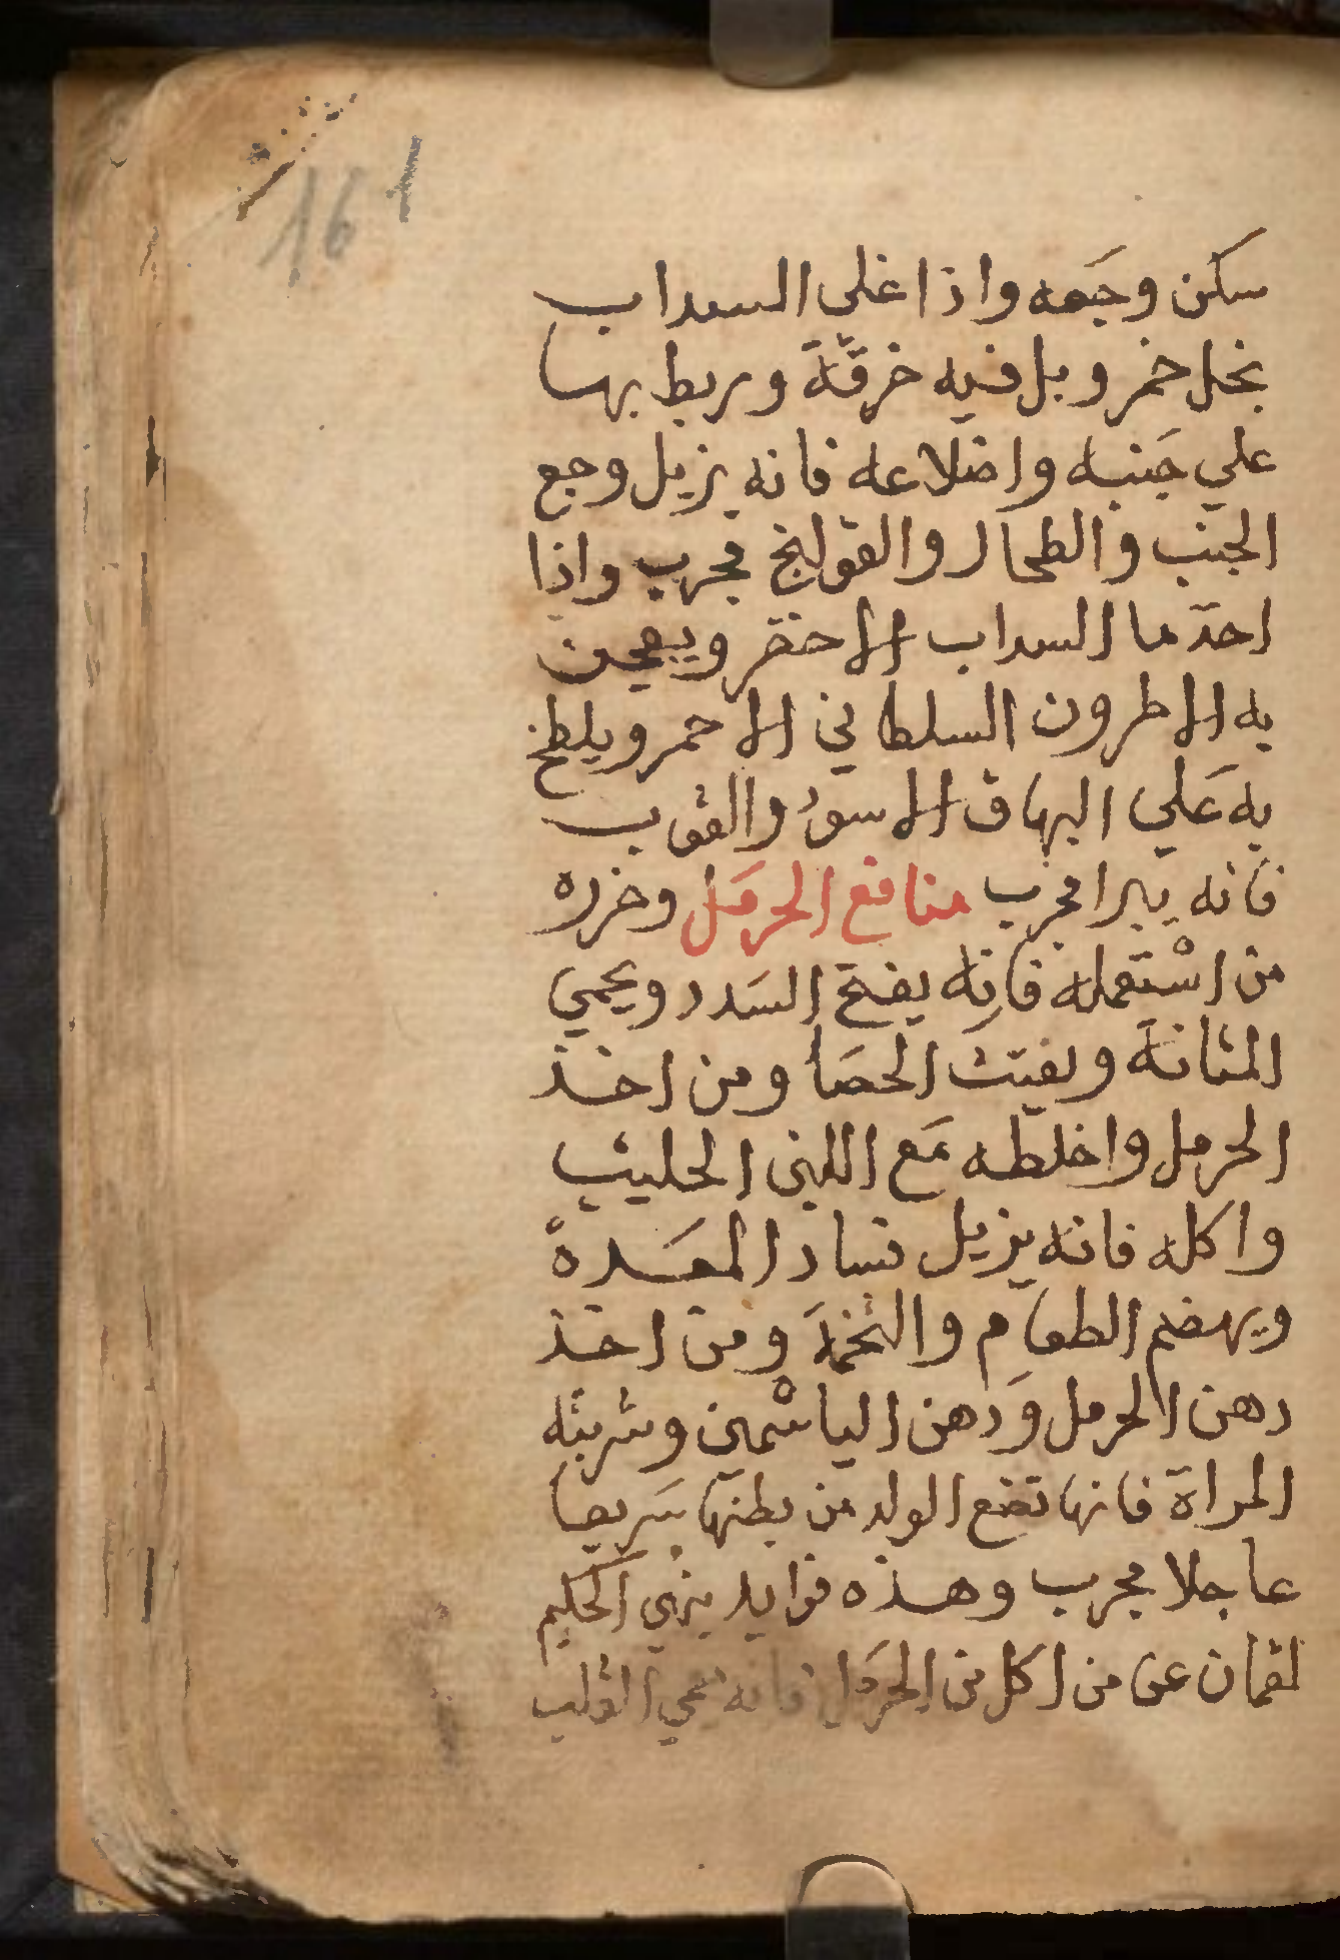 161
سكن وجَعه واذا غلي السداب
بخل خمر وبل فيه خرقَّةَ وربط بها
علي جَنبه واضلاعه فانه يزيل وجع
الجنب والطحال والقولنج مجرب واذا
احذ ما السداب الاخضر ويعجن
به الاطرون السلطاني الاحمر ويلطخ
به عَلي البهاق الاسودُ والقوب
فانه يبرا مجرب منافع الحرمَل وخزره
من اسْتعمله فانه يفتح السَدد ويحمي
المثانة ويفتت الحصَا ومن اخذ
الحرمل واخلطه مَع اللبن الحليب
واكله فانه يزيل فساد المعَدة
ويهضم الطعام والتخمَة ومن اخذ
دهن الحرمل وَدهن الياسْمين وشربته
المراة فانها تضع الولد من بطنها سَريعا
عاجلا مجرب وهذه فوايد ينهي الحكيم
لقمان عن من اكل من الحرمَل فانه يحمي القلب